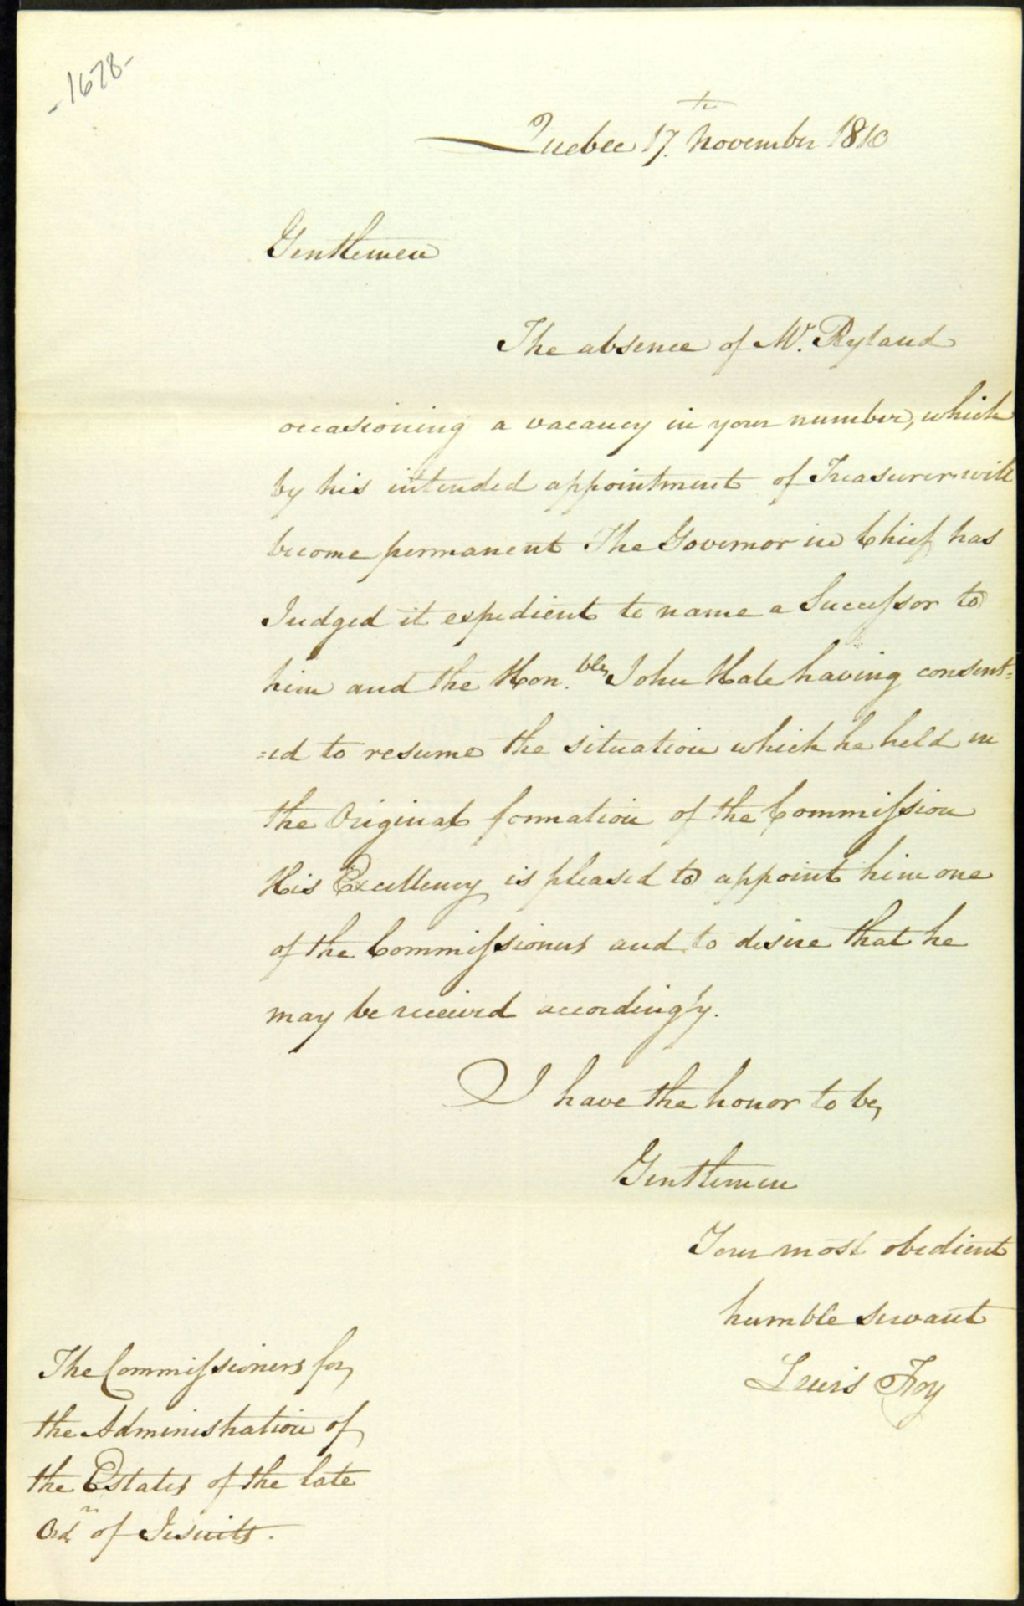 -1678-
Quebec 17.th November 1810
Gentlemen
The absence of Mr. Ryland
occasioning a vacancy in your number, which
by his intended appointment of Treasurer will
become permanent The Governor in Chief has
Judged it expedient to name a Successor to
him and the Hon.ble John Hale having consent=
=ed to resume the situation which he held in
the Original formation of the Commission
His Excellency is pleased to appoint him one
of the Commissioners and to desire that he
may be received accordingly.
I have the honor to be,
Gentlemen
Your most obedient
humble servant
Lewis Foy
The Commissioners for
the Administration of
the Estates of the late
Ordr of Jesuits.